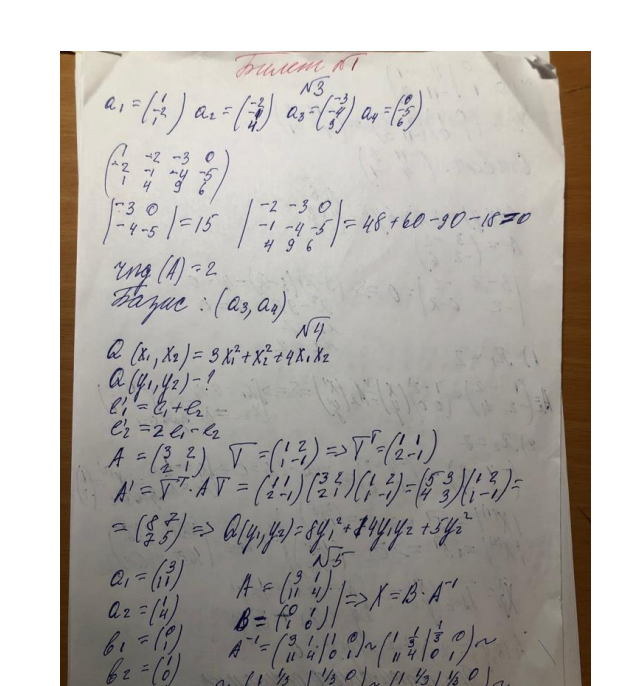 Билет №1
№3
a₁ = (1 -2 1) a₂ = (-2 -1 4) a₃ = (-3 -4 9) a₄ = (0 -5 6)
(1 -2 -3 0
-2 -1 -4 -5
1 4 9 6)
|-3 0
-4 -5| = 15 |-2 -3 0
-1 -4 -5
4 9 6| = 48 + 60 - 90 - 18 = 0
rng (A) = 2
Базис : (a₃, a₄)
№4
Q (x₁, x₂) = 3x₁² + x₂² + 4x₁x₂
Q (y₁, y₂) - ?
e₁' = e₁ + e₂
e₂' = 2e₁ - e₂
A = (3 2
2 1) T = (1 2
1 -1) => Tᵀ = (1 1
2 -1)
A' = Tᵀ · A T = (1 1
2 -1)(3 2
2 1)(1 2
1 -1) = (5 3
4 3)(1 2
1 -1) =
= (8 7
7 5) => Q(y₁, y₂) = 8y₁² + 14y₁y₂ + 5y₂²
№5
a₁ = (3 11)
a₂ = (1 4)
b₁ = (0 1)
b₂ = (1 0)
A = (3 1
11 4)
B = (0 1
1 0) | => X = B · A⁻¹
A⁻¹ = (3 1 | 1 0
11 4 | 0 1) ~ (1 1/3 | 1/3 0
11 4 | 0 1) ~